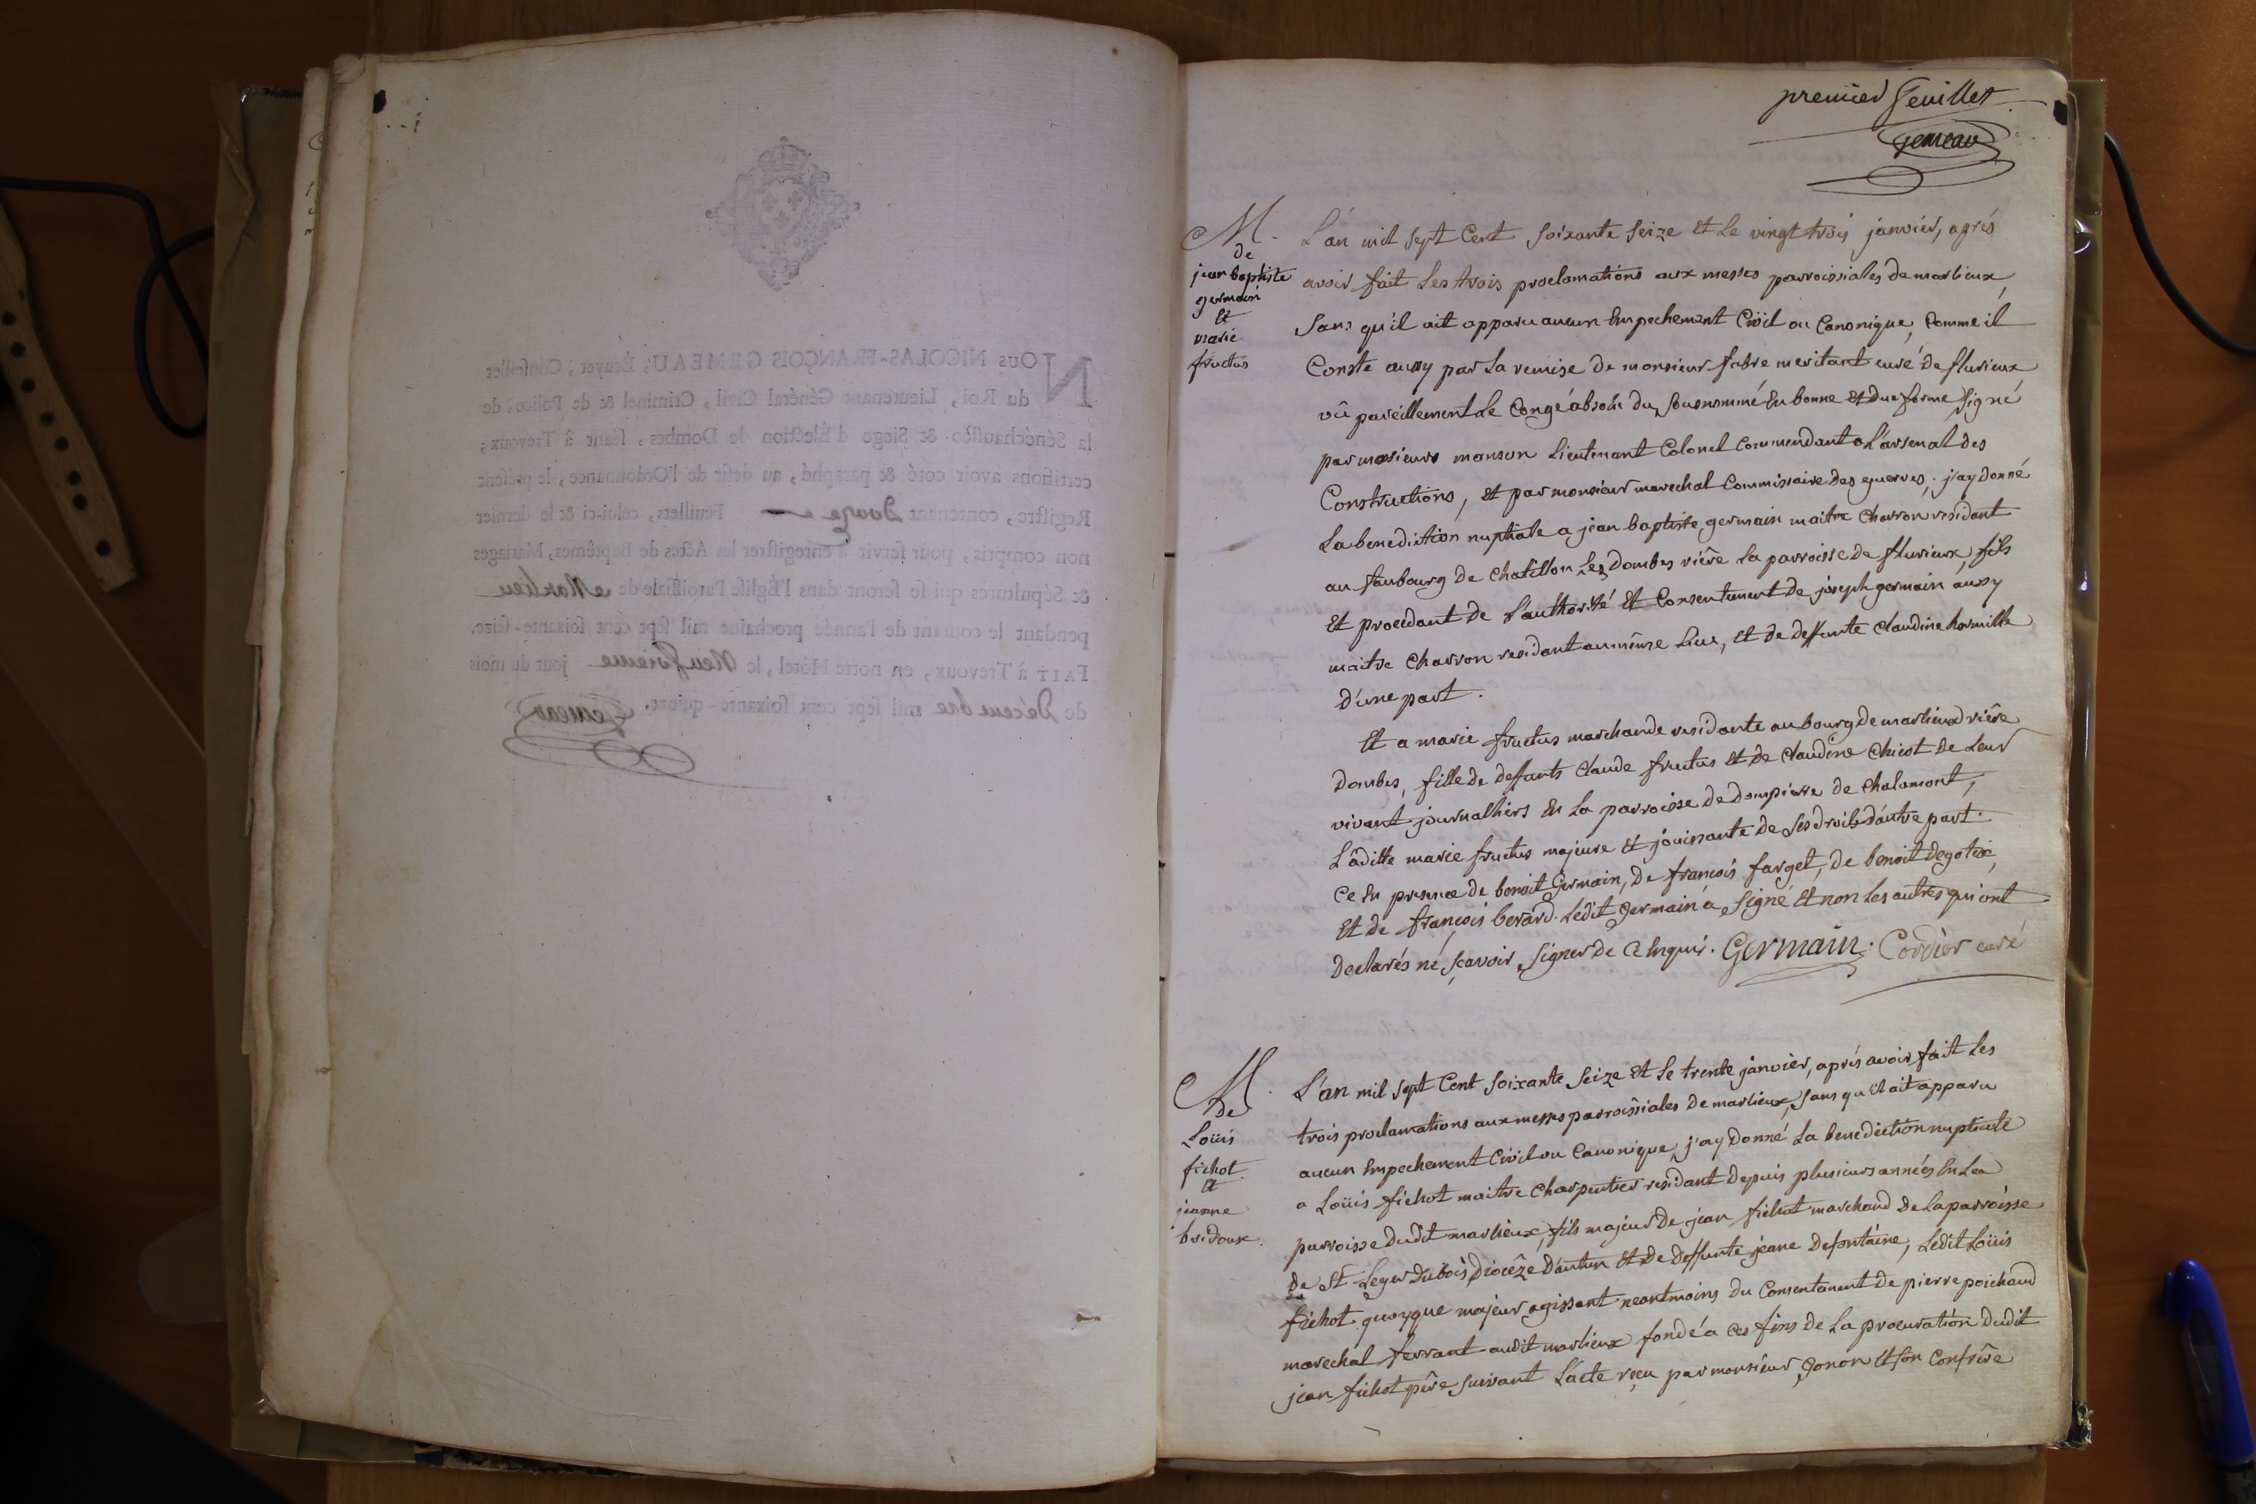 NOUS NICOLAS-FRANÇOIS GEMEAU, Écuyer, Conseiller
du Roi, Lieutenant Général Civil, Criminel & de Police, de
la Sénéchaussée & Siege d'Élection de Dombes, séant à Trevoux ;
certifions avoir coté & paraphé, au desir de l'Ordonnance, le présent
Registre, contenant Douze Feuillets, celui-ci & le dernier
non compris, pour servir à enregistrer les Actes de Baptêmes, Mariages
& Sépultures qui se feront dans l'Église Paroissiale de Marlieu
pendant le courant de l'année prochaine mil sept cent soixante-seize.
FAIT à Trevoux, en notre Hôtel, le Neufvieme jour du mois
de Décembre mil sept cent soixante-quinze. Gemeau
premier feuillet
gemeau
M.
de
jean baptiste
germain
Et
marie
fructus
L'an mil sept Cent soixante seize Et Le vingt trois janvier, aprés
avoir fait Les trois proclamations aux messes parroissiales de marlieux,
sans qu'il ait apparu aucun Empechement Civil ou Canonique, Comme il
Conste aussy par La remise de monsieur fabre meritant curé de flurieux
vû pareillement Le Congé absolu du sousnommé En bonne Et due forme signé
par messieurs manson Lieutenant Colonel Commendant a L'arsenal des
Constructions, Et par monsieur marechal Commissaire des guerres, j'ay donné
La benediction nuptiale a jean baptiste germain maitre Charron residant
au faubourg de Chatillon Les dombes riêre La parroisse de flurieux, fils
Et procedant de L'authorité Et Consentement de joseph germain aussy
maitre Charron residant au même Lieu, Et de deffunte Claudine hormille
D'une part.
Et a marie fructus marchande residante au bourg de marlieux riêre
dombes, fille de deffunts Claude fructus Et de Claudine Chicot de Leur
vivant journalliers En La parroisse de dompierre de Chalamont,
Ladite marie fructus majeure Et jouissante de ses droits d'autre part.
Ce En presence de benoit Germain, de francois farget, de benoit Degotix,
Et de francois berard. Ledit Germain a signé Et non Les autres qui ont
Declarés né scavoir signer de Ce Enquis. Germain. Cordier curé
M.
De
Loüis
fichot
Et
jeanne
bridoux.
L'an mil sept Cent soixante seize Et Le trente janvier, aprés avoir fait Les
trois proclamations aux messes parroissiales de marlieux, sans qu'il ait apparu
aucun Empechement Civil ou Canonique, j'ay Donné La benediction nuptiale
a Loüis fichot maitre Charpentier residant Depuis plusieurs années En La
parroisse dudit marlieux, fils majeur de jean fichot marchand De La parroisse
de St Leger Dubois Diocêze D'autun Et De Deffunte jeane Defontaine, Ledit Loüis
fichot quoyque majeur agissant neantmoins du Consentement de pierre poichaud
marechal ferrant audit marlieux fondé a ces fins de La procuration Dudit
jean fichot pêre suivant L'acte reçu par monsieur gonon Et son Confrêre